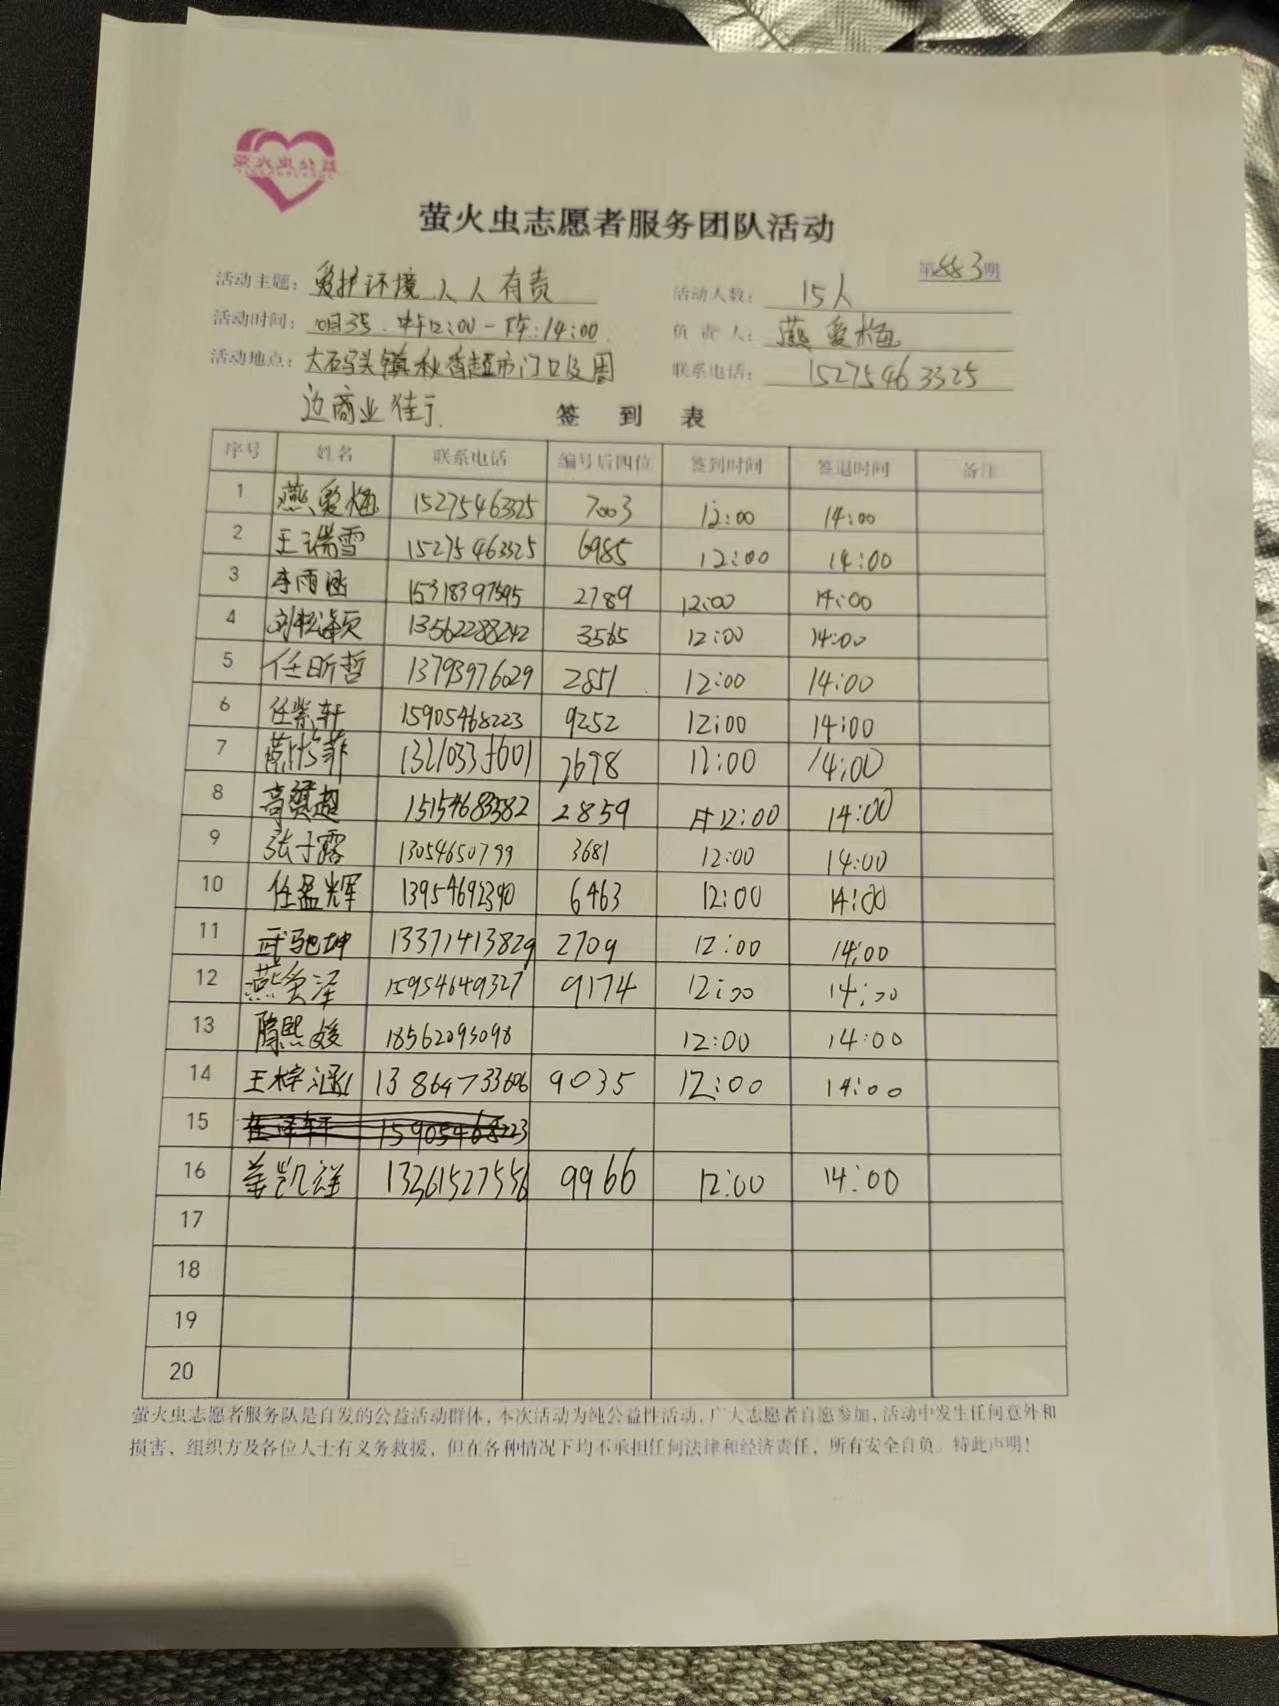 萤火虫志愿者服务团队活动
第883期
活动主题: 爱护环境 人人有责 活动人数: 15人
活动时间: 10月3号.中午12:00-下午:14:00 负责人: 燕爱梅
活动地点: 大码头镇秋香超市门口及周 联系电话: 15275463325
边商业街
签到表
序号 姓名 联系电话 编号后四位 签到时间 签退时间 备注
1 燕爱梅 15275463325 7003 12:00 14:00
2 王瑞雪 15275463325 6985 12:00 14:00
3 李雨涵 15318397595 2789 12:00 14:00
4 刘松源 13562288242 3565 12:00 14:00
5 任昕哲 13793976029 2851 12:00 14:00
6 任紫轩 15905468223 9252 12:00 14:00
7 13210335601 2698 12:00 14:00
8 高奕超 15154683382 2859 12:00 14:00
9 张子露 13054650799 3681 12:00 14:00
10 任盈辉 13954692390 6463 12:00 14:00
11 武驰坤 13371413829 2709 12:00 14:00
12 燕奂泽 15954649327 9174 12:00 14:00
13 陈熙媛 18562093098 12:00 14:00
14 王梓涵 13864733606 9035 12:00 14:00
15 任泽轩 15905468223
16 姜凯祥 13361527556 9966 12:00 14:00
17
18
19
20
萤火虫志愿者服务队是自发的公益活动群体，本次活动为纯公益性活动，广大志愿者自愿参加，活动中发生任何意外和
损害、组织方及各位人士有义务救援，但在各种情况下均不承担任何法律和经济责任，所有安全自负。特此声明！